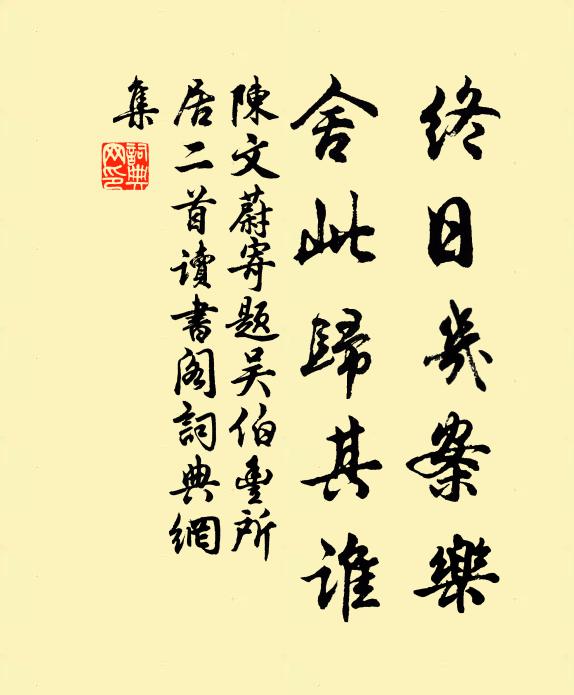 終日幾案樂
舍此歸其誰
陳文蔚寄題吳伯豐所
居二首讀書閣詞典網
集
詞典網印